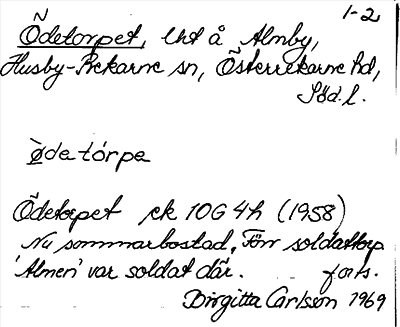 1-2
Ödetorpet, lht å Almby,
Husby-Rekarne sn, Österrekarne hd,
Söd. l.
Ødetórpa
Ödetorpet ek 10G 4h (1958)
Nu sommarbostad. Förr soldattorp
'Almen' var soldat där. forts.
Birgitta Carlsson 1969